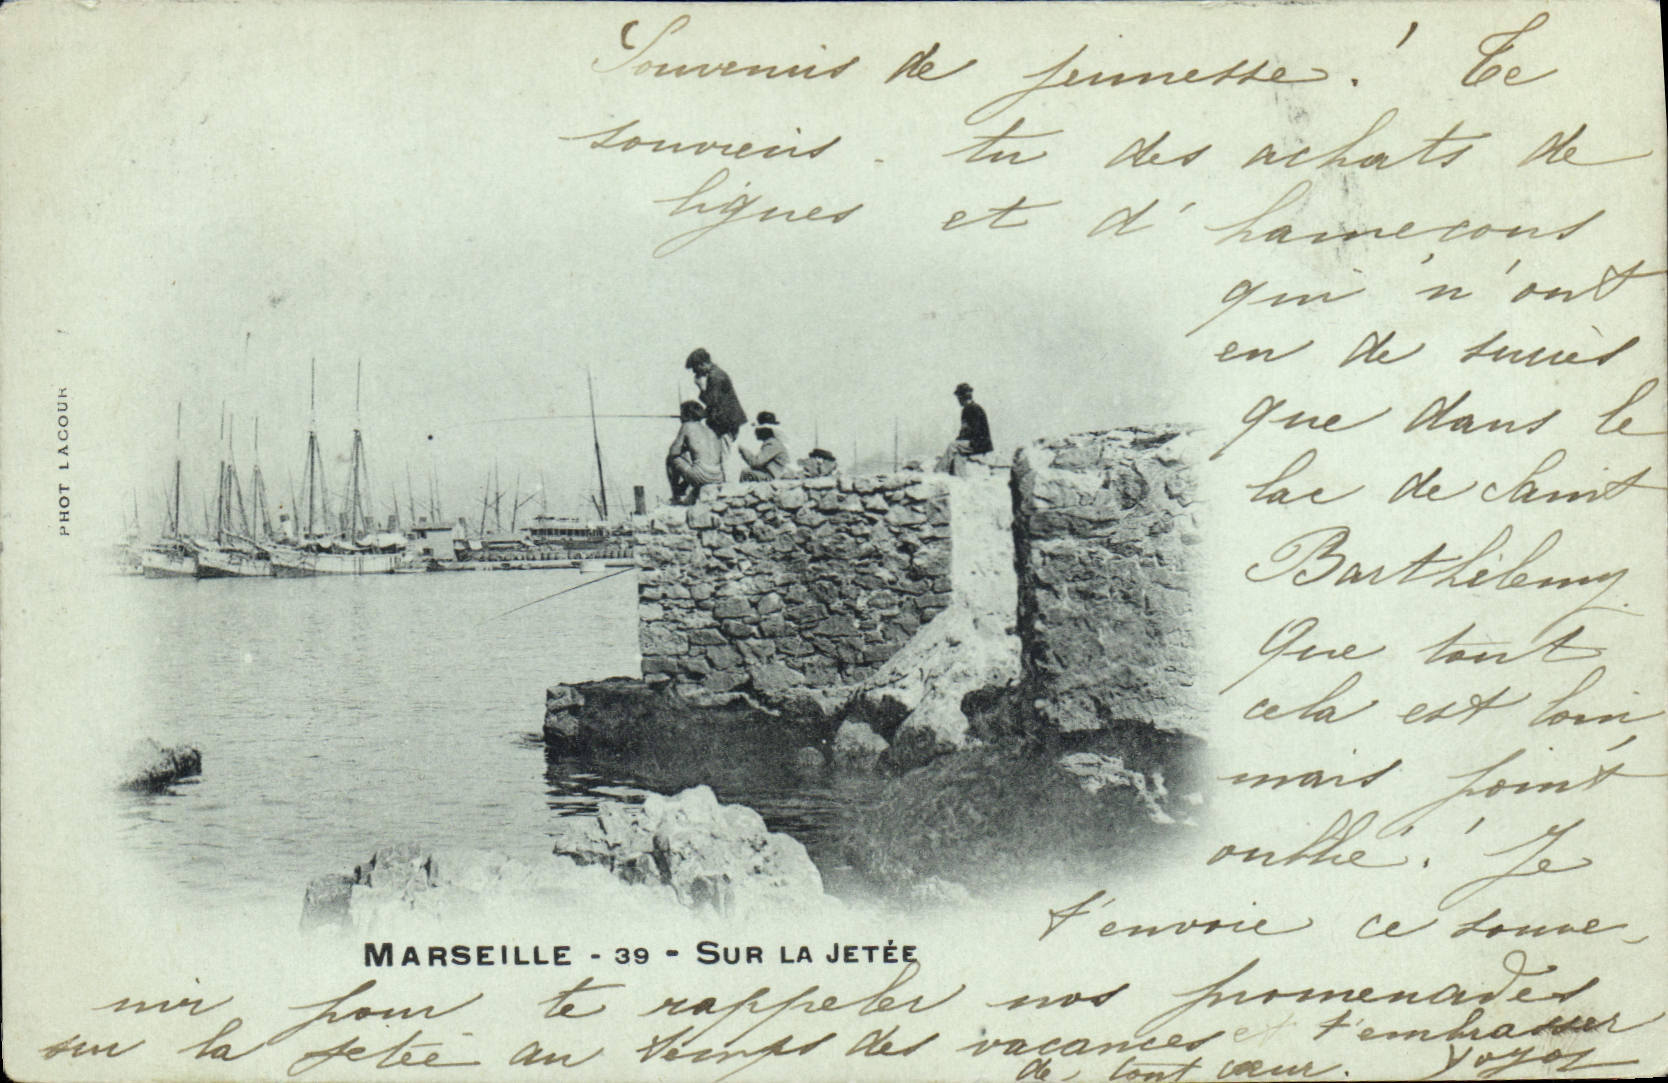 Souvenirs de jeunesse ! Te
souviens - tu des achats de
lignes et d'hameçons
qui n'ont
eu de succès
que dans le
lac de Saint
Barthélemy.
Que tout
cela est loin,
mais point
oublié ! Je
t'envoie ce souve-
nir pour te rappeler nos promenades
sur la jetée au temps des vacances et t'embrasser
de tout cœur.
PHOT LACOUR
MARSEILLE - 39 - SUR LA JETÉE